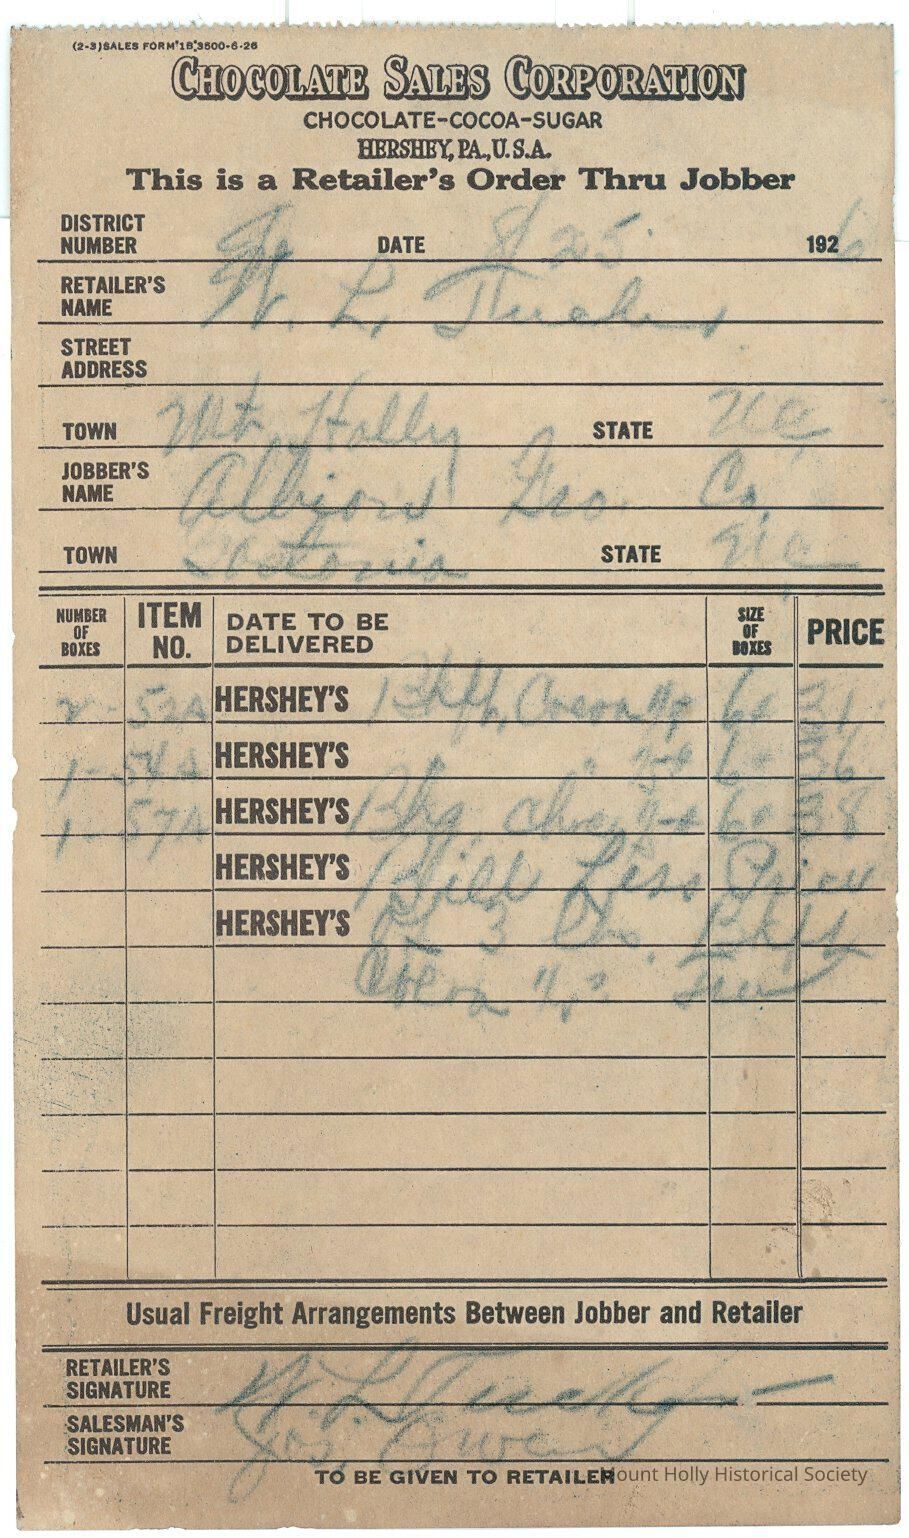 (2-3)SALES FORM#1B,3500-6-26
CHOCOLATE SALES CORPORATION
CHOCOLATE-COCOA-SUGAR
HERSHEY, PA., U.S.A.
This is a Retailer's Order Thru Jobber
DISTRICT NUMBER DATE 8/25 1926
RETAILER'S NAME W. L. Tucker
STREET ADDRESS
TOWN Mt Holly STATE NC
JOBBER'S NAME Gro. Co.
TOWN STATE NC
NUMBER OF BOXES ITEM NO. DATE TO BE DELIVERED SIZE OF BOXES PRICE
2 - 52A HERSHEY'S Bkft, Cocoa 6# 31
1 - 54A HERSHEY'S " " 6# 36
1 - 57A HERSHEY'S 6# 38
HERSHEY'S Bill Less
HERSHEY'S 3 Bkft
Cocoa
Usual Freight Arrangements Between Jobber and Retailer
RETAILER'S SIGNATURE W. L. Tucker
SALESMAN'S SIGNATURE Jos. Owen
TO BE GIVEN TO RETAILER
Mount Holly Historical Society